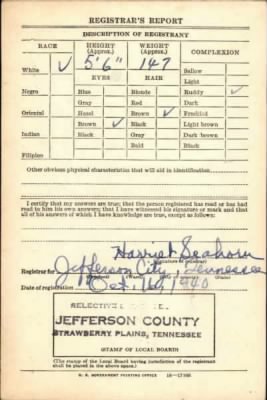 REGISTRAR'S REPORT
DESCRIPTION OF REGISTRANT
RACE HEIGHT (Approx.) WEIGHT (Approx.) COMPLEXION
White ✓ 5' 6" 147 Sallow
EYES HAIR Light
Negro Blue Blonde Ruddy ✓
Gray Red Dark
Oriental Hazel Brown ✓ Freckled
Brown ✓ Black Light brown
Indian Black Gray Dark brown
Bald Black
Filipino
Other obvious physical characteristics that will aid in identification
I certify that my answers are true; that the person registered has read or has had read to him his own answers; that I have witnessed his signature or mark and that all of his answers of which I have knowledge are true, except as follows:
Harriet Seahorn
(Signature of registrar)
Registrar for Jefferson City, Tennessee
Date of registration Oct. 16, 1940
SELECTIVE
JEFFERSON COUNTY
STRAWBERRY PLAINS, TENNESSEE
(STAMP OF LOCAL BOARD)
(The stamp of the Local Board having jurisdiction of the registrant shall be placed in the above space.)
U. S. GOVERNMENT PRINTING OFFICE